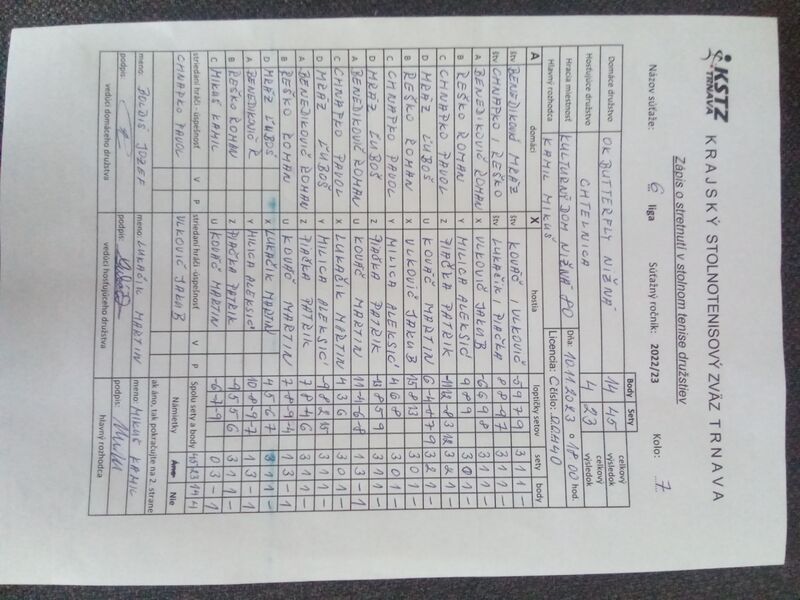 KSTZ TRNAVA
KRAJSKÝ STOLNOTENISOVÝ ZVÄZ TRNAVA
Zápis o stretnutí v stolnom tenise družstiev
Názov súťaže: 6 liga Súťažný ročník: 2022/23 Kolo: 7
Body Sety
Domáce družstvo OK BUTTERFLY NIŽNÁ 14 45 celkový výsledok
Hosťujúce družstvo CHTELNICA 4 23 celkový výsledok
Hracia miestnosť KULTURNÝ DOM NIŽNÁ 80 Dňa: 10.11.2023 o 18 00 hod.
Hlavný rozhodca KAMIL MIKUŠ Licencia: C číslo:
A domáci X hostia loptičky setov sety body
štv BENEDIKOVIČ MRÁZ štv KOVÁČ I VLKOVIČ -5 9 7 9 3 1 1 -
štv CHNAPKO I REŠKO štv LUKAČIK I PIAČKA 8 8 -9 7 3 1 1 -
A BENEDIKOVIČ ROMAN X VLKOVIČ JAKUB -6 6 9 8 3 1 1 -
B REŠKO ROMAN Y MILICA ALEKSIĆ 9 8 9 3 0 1 -
C CHNAPKO PAVOL Z PIAČKA PATRIK 3 2 1 -
D MRÁZ ĽUBOŠ U KOVÁČ MARTIN 6 -4 -8 7 9 3 2 1 -
B REŠKO ROMAN X VLKOVIČ JAKUB 15 8 13 3 0 1 -
C CHNAPKO PAVOL Y MILICA ALEKSIĆ 4 6 8 3 0 1 -
D MRÁZ ĽUBOŠ Z PIAČKA PATRIK 8 5 9 3 1 1 -
A BENEDIKOVIČ ROMAN U KOVÁČ MARTIN 11 -4 -6 -8 1 3 - 1
C CHNAPKO PAVOL X LUKAČIK MARTIN 4 3 6 3 0 1 -
D MRÁZ ĽUBOŠ Y MILICA ALEKSIĆ -9 8 2 15 3 1 1 -
A BENEDIKOVIČ ROMAN Z PIAČKA PATRIK 7 8 -4 6 3 1 1 -
B REŠKO ROMAN U KOVÁČ MARTIN 7 -8 -9 -4 1 3 - 1
D MRÁZ ĽUBOŠ X LUKAČIK MARTIN 4 5 -6 7 3 1 1 -
A BENEDIKOVIČ R Y MILICA ALEKSIĆ 10 -8 -9 -7 1 3 - 1
B REŠKO ROMAN Z PIAČKA PATRIK -9 5 5 6 3 1 1 -
C MIKUŠ KAMIL U KOVÁČ MARTIN -6 -7 -9 0 3 - 1
striedaní hráči -úspešnosť V P striedaní hráči -úspešnosť V P Spolu sety a body 45 23 14 4
CHNAPKO PAVOL VLKOVIČ JAKUB Námietky Áno Nie
ak áno, tak pokračujte na 2. strane
meno: BOLDIŠ JOZEF meno: LUKAČIK MARTIN meno: MIKUŠ KAMIL
podpis: podpis: podpis:
vedúci domáceho družstva vedúci hosťujúceho družstva hlavný rozhodca